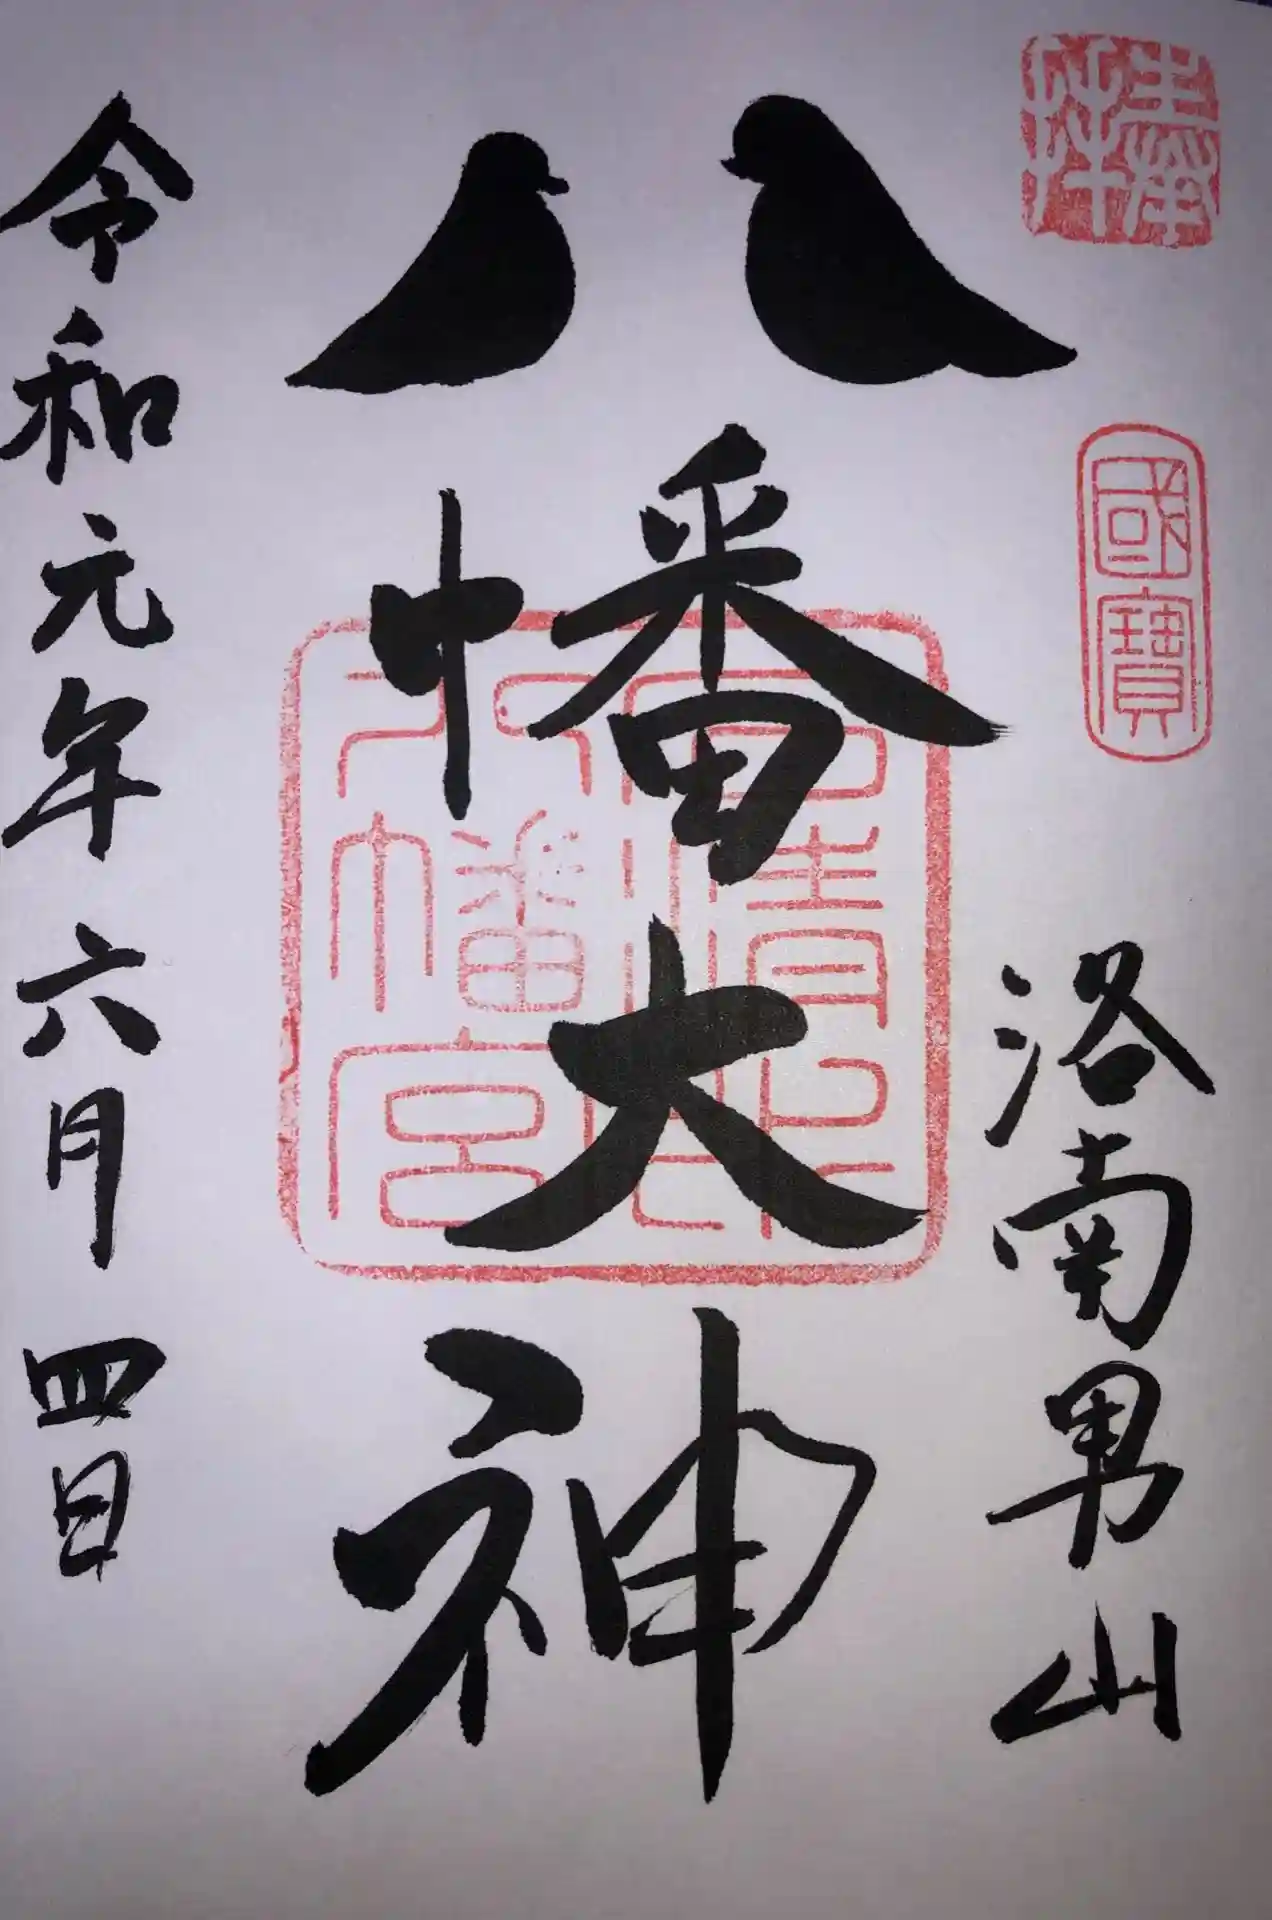 奉拝
國寶
洛南男山
八幡大神
石清水
八幡宮
令和元年六月四日